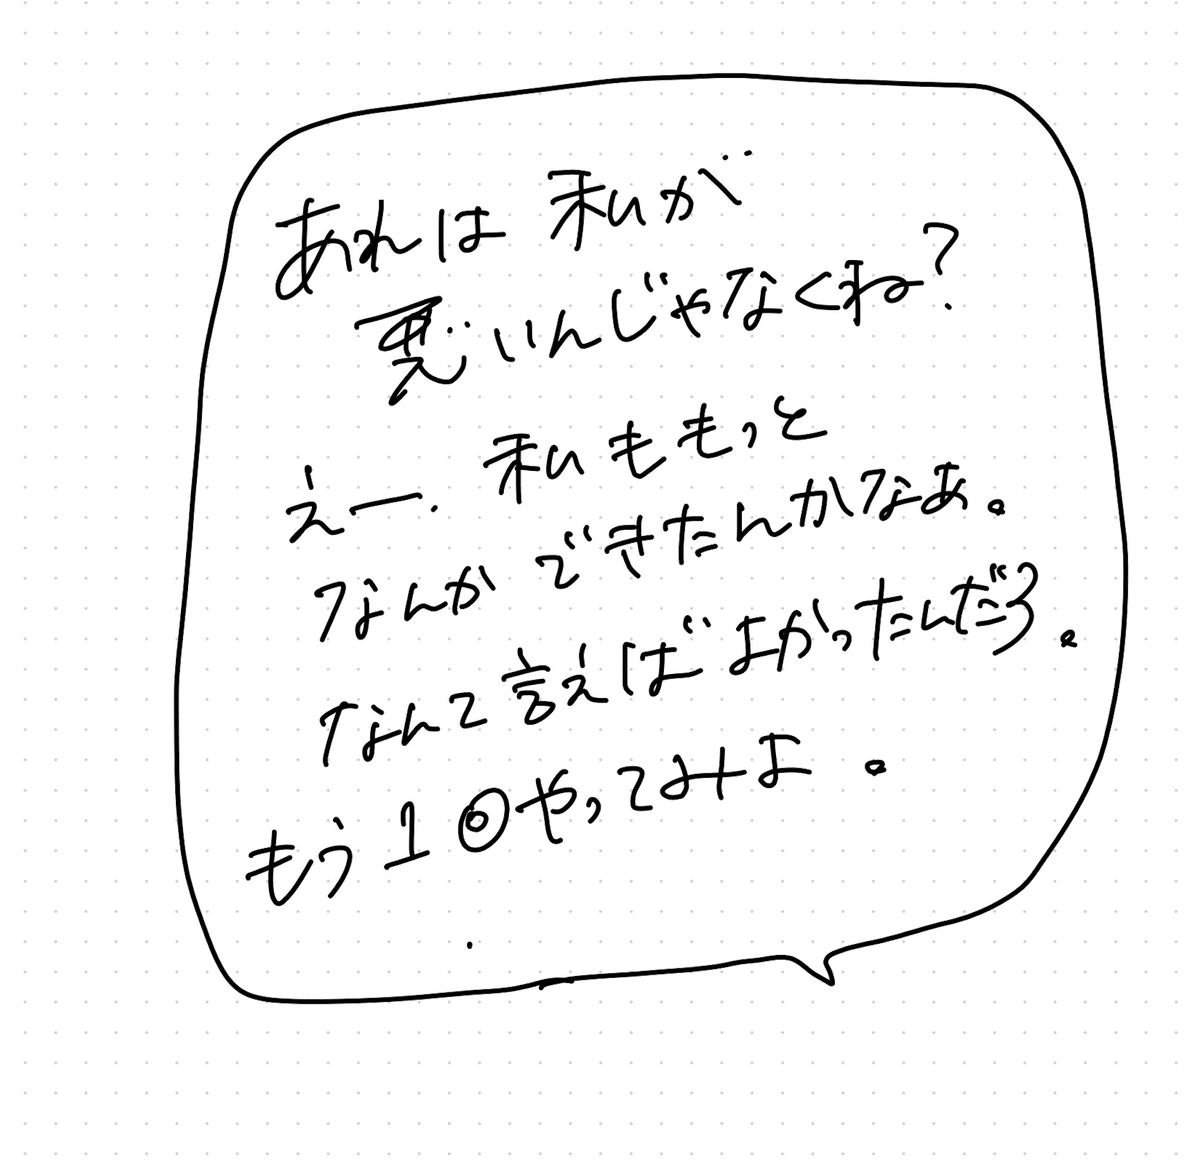 あれは 私が
悪いんじゃなくね?
えー. 私ももっと
なんか できたんかなぁ。
なんて 言えば よかったんだろ。
もう1回やってみよ。